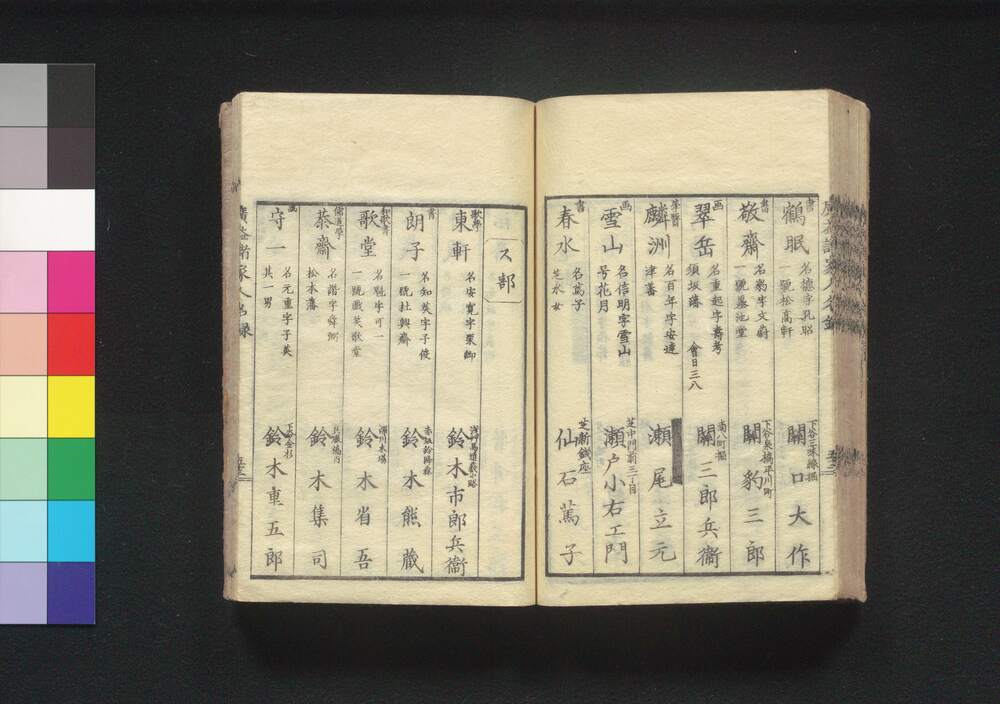 書 鶴眠 名德字孔昭 一號松高軒 下谷三味線堀 關口大作
書 敬齋 名豹字文蔚 一號墨池堂 下谷長橋平川町 關豹三郎
画 翠岳 名重起字壽考 須坂藩 會日三八 南八町堀 關三郎兵衞
麟洲 名百年字安達 津藩 瀬尾立元
画 雪山 名信明字雪山 号花月 芝中門前三丁目 瀬戸小右エ門
書 春水 名蔦子 芝水女 芝新錢座 仙石蔦子
ス部
歌學 東軒 名安寛字栗卿 鈴木市郎兵衞
書 朗子 名知英字子俊 一號杜興齋 鈴木熊藏
歌堂 一號戲笑歌堂 深川木場 鈴木省吾
儒 㳟齋 名諧字舜卿 松本藩 鈴木集司
画 守一 名元重字子英 其一男 下谷金杉 鈴木重五郎
廣益諸家人名録